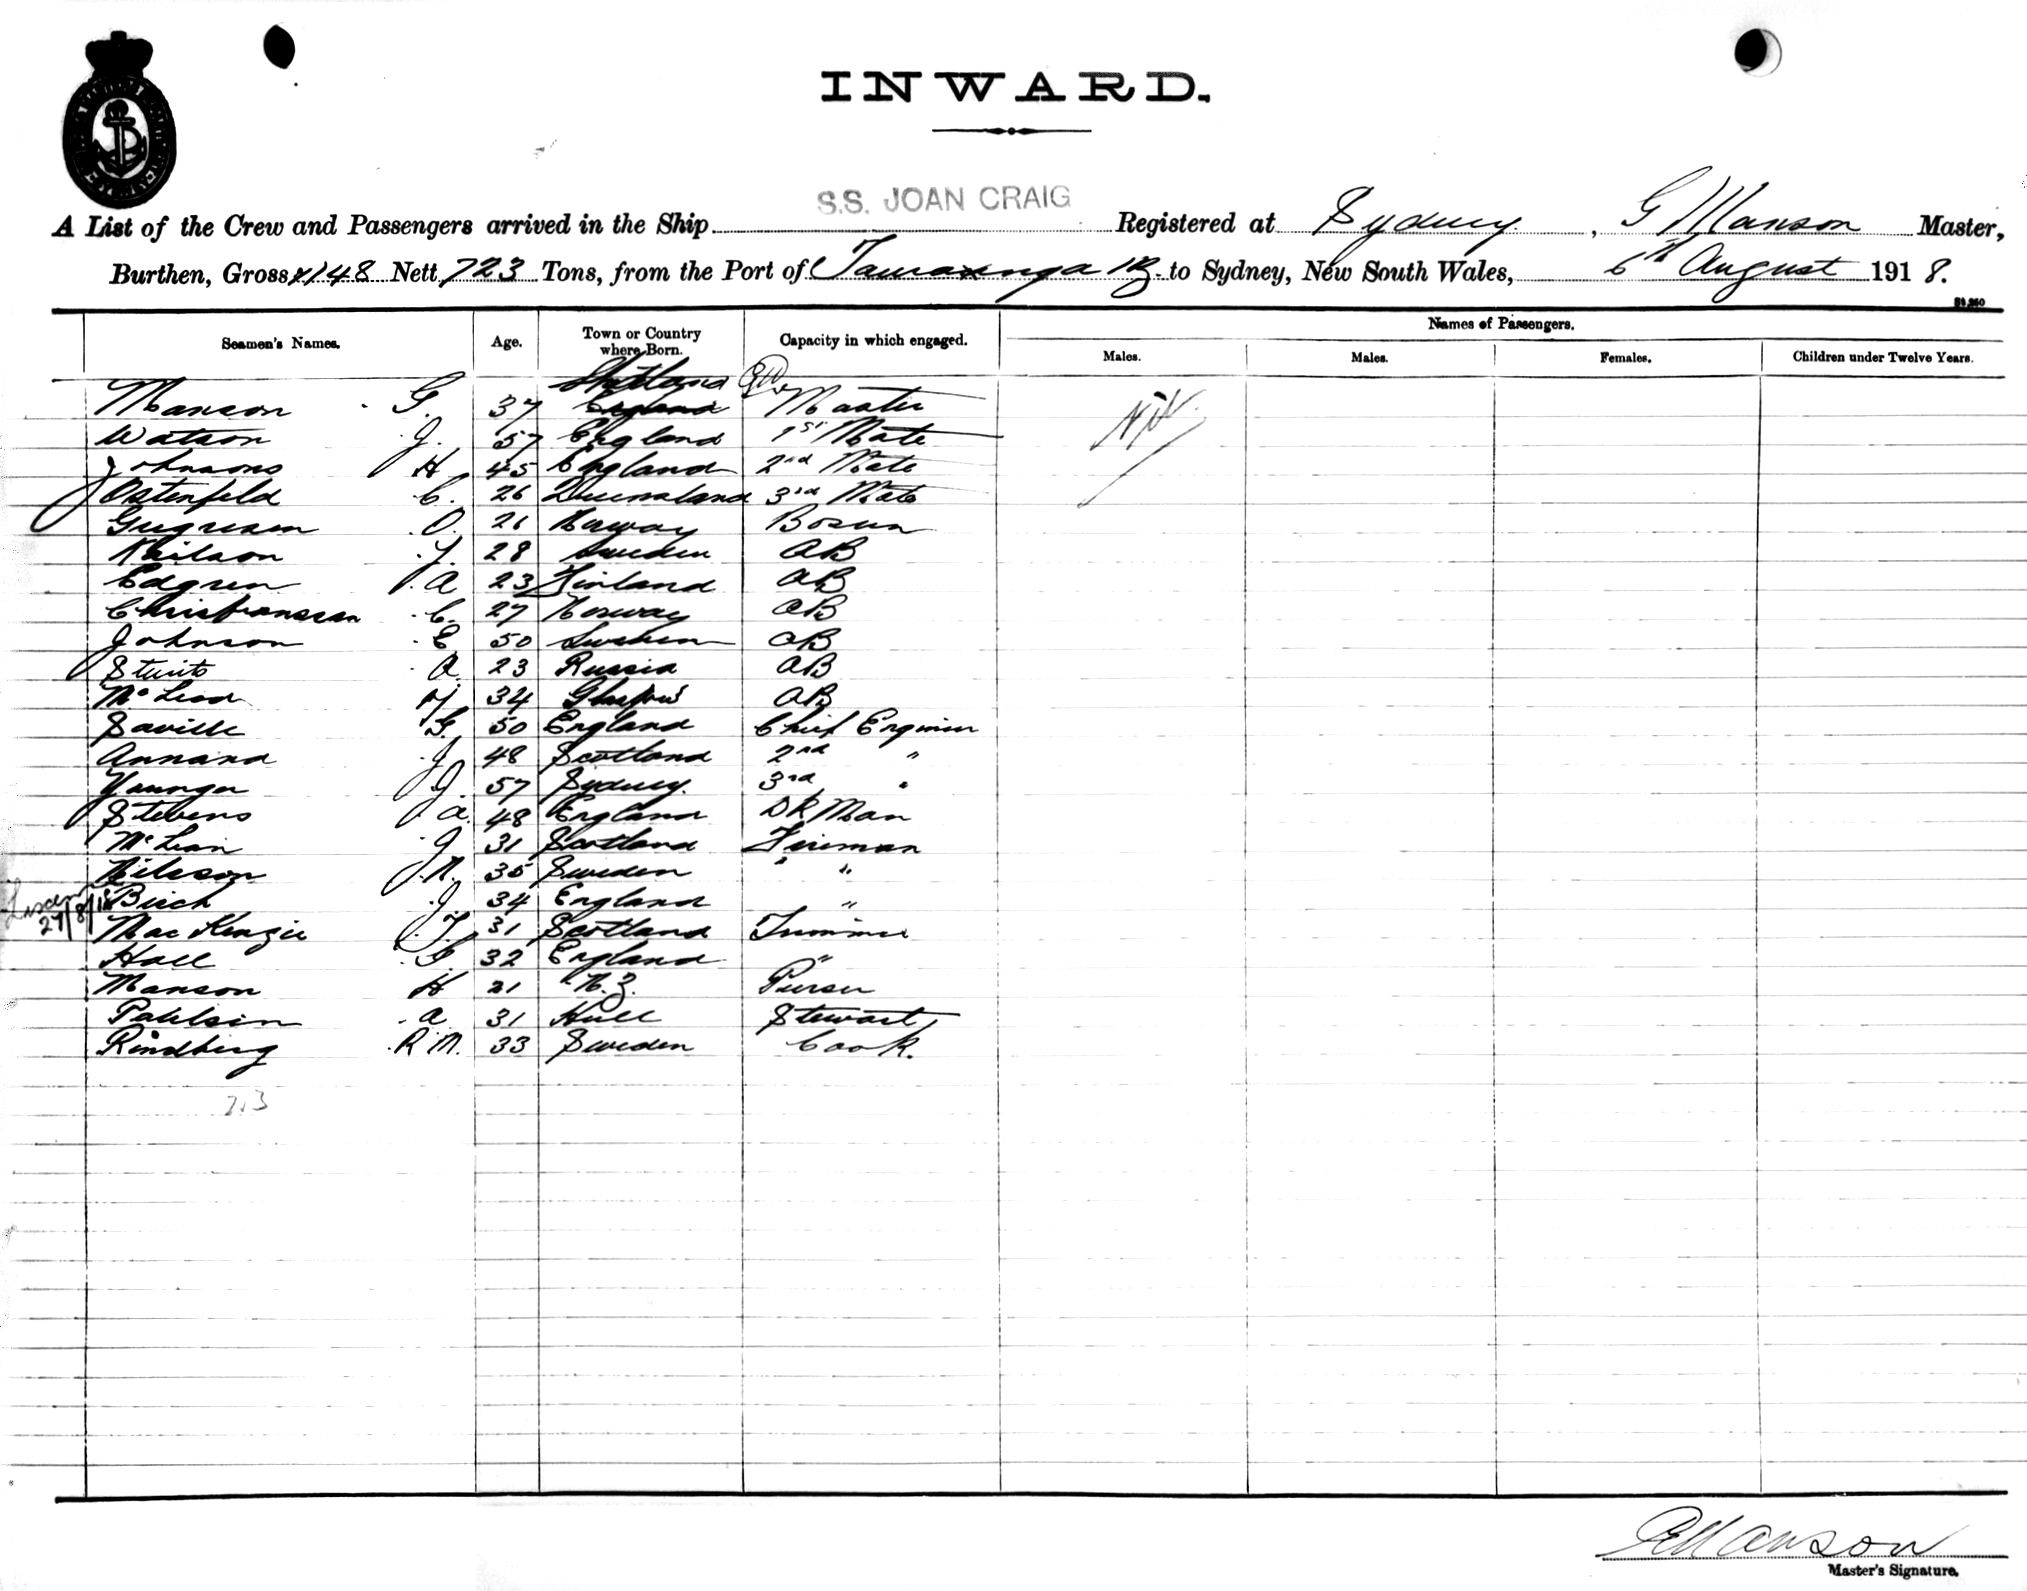 INWARD.
S.S. JOAN CRAIG
A List of the Crew and Passengers arrived in the Ship Registered at Sydney, G Manson Master,
Burthen, Gross 1148 Nett 723 Tons, from the Port of to Sydney, New South Wales, 6th August 1918.
Names of Passengers.
Seamen's Names. Age. Town or Country where Born. Capacity in which engaged. Males. Males. Females. Children under Twelve Years.
Shetland
Manson G. 37 England Master Nil
Watson J. 57 England 1st Mate
Johnsons H 45 England 2nd Mate
Ostenfeld C. 26 Queensland 3rd Mate
O. 26 Norway Bosun
Neilson J. 28 Sweden AB
Edgren A 23 Finland AB
Christianssen C. 27 Norway AB
Johnson E 50 Sweden AB
A. 23 Russia AB
McLeod 34 Glasgow AB
Saville G. 50 England Chief Engineer
Annand J 48 Scotland 2nd "
Younger J. 57 Sydney. 3rd "
Stevens A. 48 England DK Man
McLean J 31 Scotland Fireman
Nilsson J.N. 35 Sweden " "
Birch J 34 England "
27/8/18
MacKenzie J. 31 Scotland Trimmer
Hall G. 32 England "
Manson H 21 N.Z. Purser
Pahlsin A 31 Hull Stewart
Rindberg R.M. 33 Sweden Cook.
23
G Manson
Master's Signature.